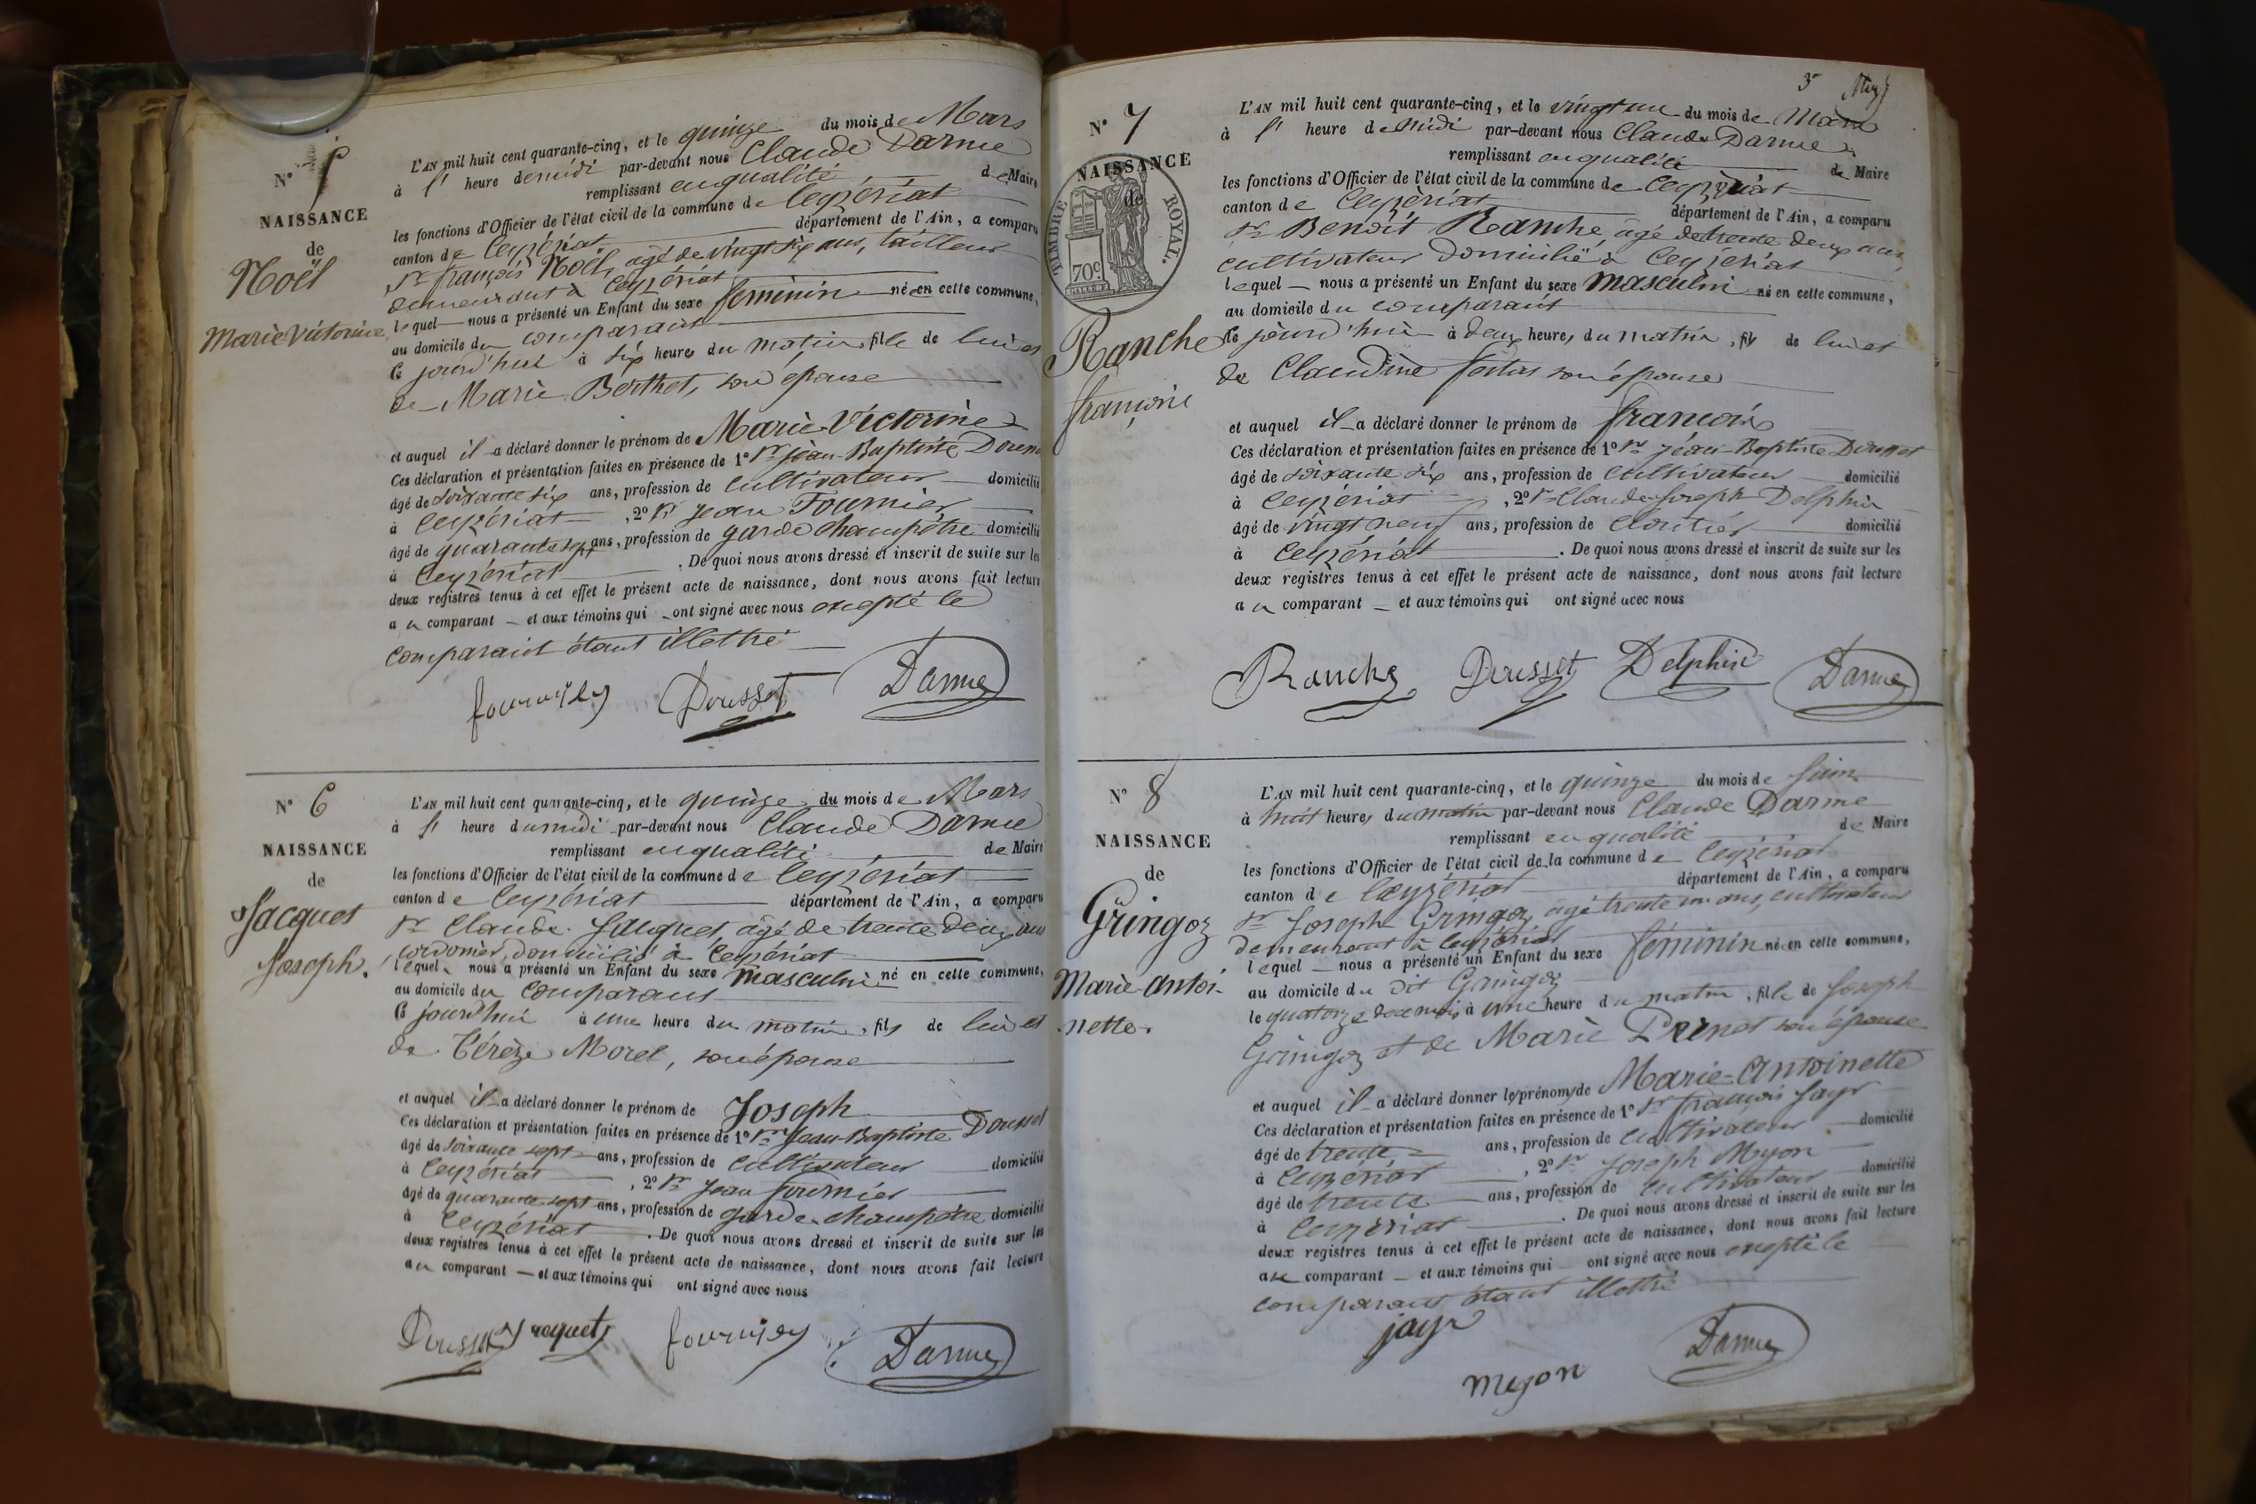 N° 5
NAISSANCE
de
Noël
Marie Victorine
L'AN mil huit cent quarante-cinq, et le quinze du mois de Mars
à l' heure de midi par-devant nous Claude Darme
remplissant en qualité de Maire
les fonctions d'Officier de l'état civil de la commune de Ceyzériat
canton de Ceyzériat département de l'Ain, a comparu
Sr françois Noël, agé de vingt six ans, tailleur
demeurant à Ceyzériat
lequel nous a présenté un Enfant du sexe feminin né en cette commune,
au domicile du comparant
Ce jourd'hui à six heures du matin, fille de lui et
de Marie Berthet, son épouse
et auquel il a déclaré donner le prénom de Marie Victorine
Ces déclaration et présentation faites en présence de 1° Sr Jean-Baptiste Dousset
âgé de soixante six ans, profession de cultivateur domicilié
à Ceyzériat, 2° Sr Jean Fournier
âgé de quarante sept ans, profession de garde champêtre domicilié
à Ceyzériat. De quoi nous avons dressé et inscrit de suite sur les
deux registres tenus à cet effet le présent acte de naissance, dont nous avons fait lecture
au comparant et aux témoins qui ont signé avec nous excepté le
comparant étant illettré
fournier Dousset Darme
N° 6
NAISSANCE
de
Jacquet
Joseph.
L'AN mil huit cent quarante-cinq, et le quinze du mois de Mars
à l' heure du midi par-devant nous Claude Darme
remplissant en qualité de Maire
les fonctions d'Officier de l'état civil de la commune de Ceyzériat
canton de Ceyzériat département de l'Ain, a comparu
Sr Claude Jacquet, âgé de trente deux ans
cordonier, domicilié à Ceyzériat
lequel nous a présenté un Enfant du sexe masculin né en cette commune,
au domicile du comparant
Ce jourd'hui à une heure du matin, fils de lui et
de Térèze Morel, son épouse
et auquel il a déclaré donner le prénom de Joseph
Ces déclaration et présentation faites en présence de 1° Sr Jean-Baptiste Dousset
âgé de soixante sept ans, profession de cultivateur domicilié
à Ceyzériat, 2° Sr Jean fournier
âgé de quarante sept ans, profession de garde champêtre domicilié
à Ceyzériat. De quoi nous avons dressé et inscrit de suite sur les
deux registres tenus à cet effet le présent acte de naissance, dont nous avons fait lecture
au comparant et aux témoins qui ont signé avec nous
Dousset Jacquet fournier Darme
3e
N° 7
NAISSANCE
de
TIMBRE ROYAL.
70c.
Ranche
françois
L'AN mil huit cent quarante-cinq, et le vingt un du mois de Mars
à l' heure de midi par-devant nous Claude Darme
remplissant en qualité de Maire
les fonctions d'Officier de l'état civil de la commune de Ceyzériat
canton de Ceyzériat département de l'Ain, a comparu
Sr Benoît Ranche, agé de trente deux ans,
cultivateur domicilié à Ceyzériat
lequel nous a présenté un Enfant du sexe masculin né en cette commune,
au domicile du comparant
le jourd'hui à deux heures du matin, fils de lui et
de Claudine son épouse
et auquel il a déclaré donner le prénom de françois
Ces déclaration et présentation faites en présence de 1° Sr Jean-Baptiste Dousset
âgé de soixante six ans, profession de cultivateur domicilié
à Ceyzériat, 2° Sr Claude Joseph Delphin
âgé de vingt neuf ans, profession de cloutier domicilié
à Ceyzériat. De quoi nous avons dressé et inscrit de suite sur les
deux registres tenus à cet effet le présent acte de naissance, dont nous avons fait lecture
au comparant et aux témoins qui ont signé avec nous
Ranche Dousset Delphin Darme
N° 8
NAISSANCE
de
Gringoz
Marie antoi-
nette.
L'AN mil huit cent quarante-cinq, et le quinze du mois de Juin
à huit heures du matin par-devant nous Claude Darme
remplissant en qualité de Maire
les fonctions d'Officier de l'état civil de la commune de Ceyzériat
canton de Ceyzériat département de l'Ain, a comparu
Sr Joseph Gringoz, agé trente un ans, cultivateur
demeurant à Ceyzériat
lequel nous a présenté un Enfant du sexe féminin né en cette commune,
au domicile du dit Gringoz
le quatorze de ce mois, à une heure du matin, fille de Joseph
Gringoz et de Marie Perinet son épouse
et auquel il a déclaré donner le prénom de Marie-Antoinette
Ces déclaration et présentation faites en présence de 1° Sr françois Jayr
âgé de trente ans, profession de cultivateur domicilié
à Ceyzériat, 2° Sr Joseph Myon
âgé de trente ans, profession de cultivateur domicilié
à Ceyzériat. De quoi nous avons dressé et inscrit de suite sur les
deux registres tenus à cet effet le présent acte de naissance, dont nous avons fait lecture
au comparant et aux témoins qui ont signé avec nous excepté le
comparant étant illettré
jayr
myon Darme